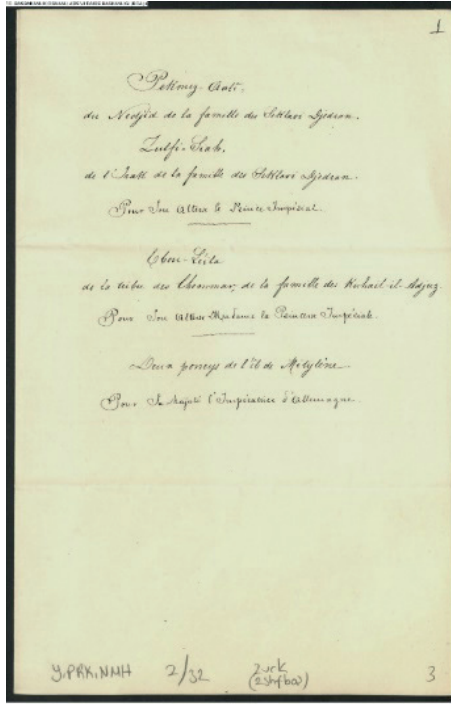 1
Pekmez-Aali.
du Nedjid de la famille des Seklavi Djedran.
Zulfi-Irak.
de l'Irak de la famille des Seklavi Djedran.
Pour Son Altesse le Prince Impérial.
Ebou-Leila
de la tribu des Chammar, de la famille des Kuhail-il-Adjuz.
Pour Son Altesse Madame la Princesse Impériale.
Deux poneys de l'île de Mitylène
Pour Sa Majesté l'Impératrice d'Allemagne.
Y.PRK.NMH 2/32 3